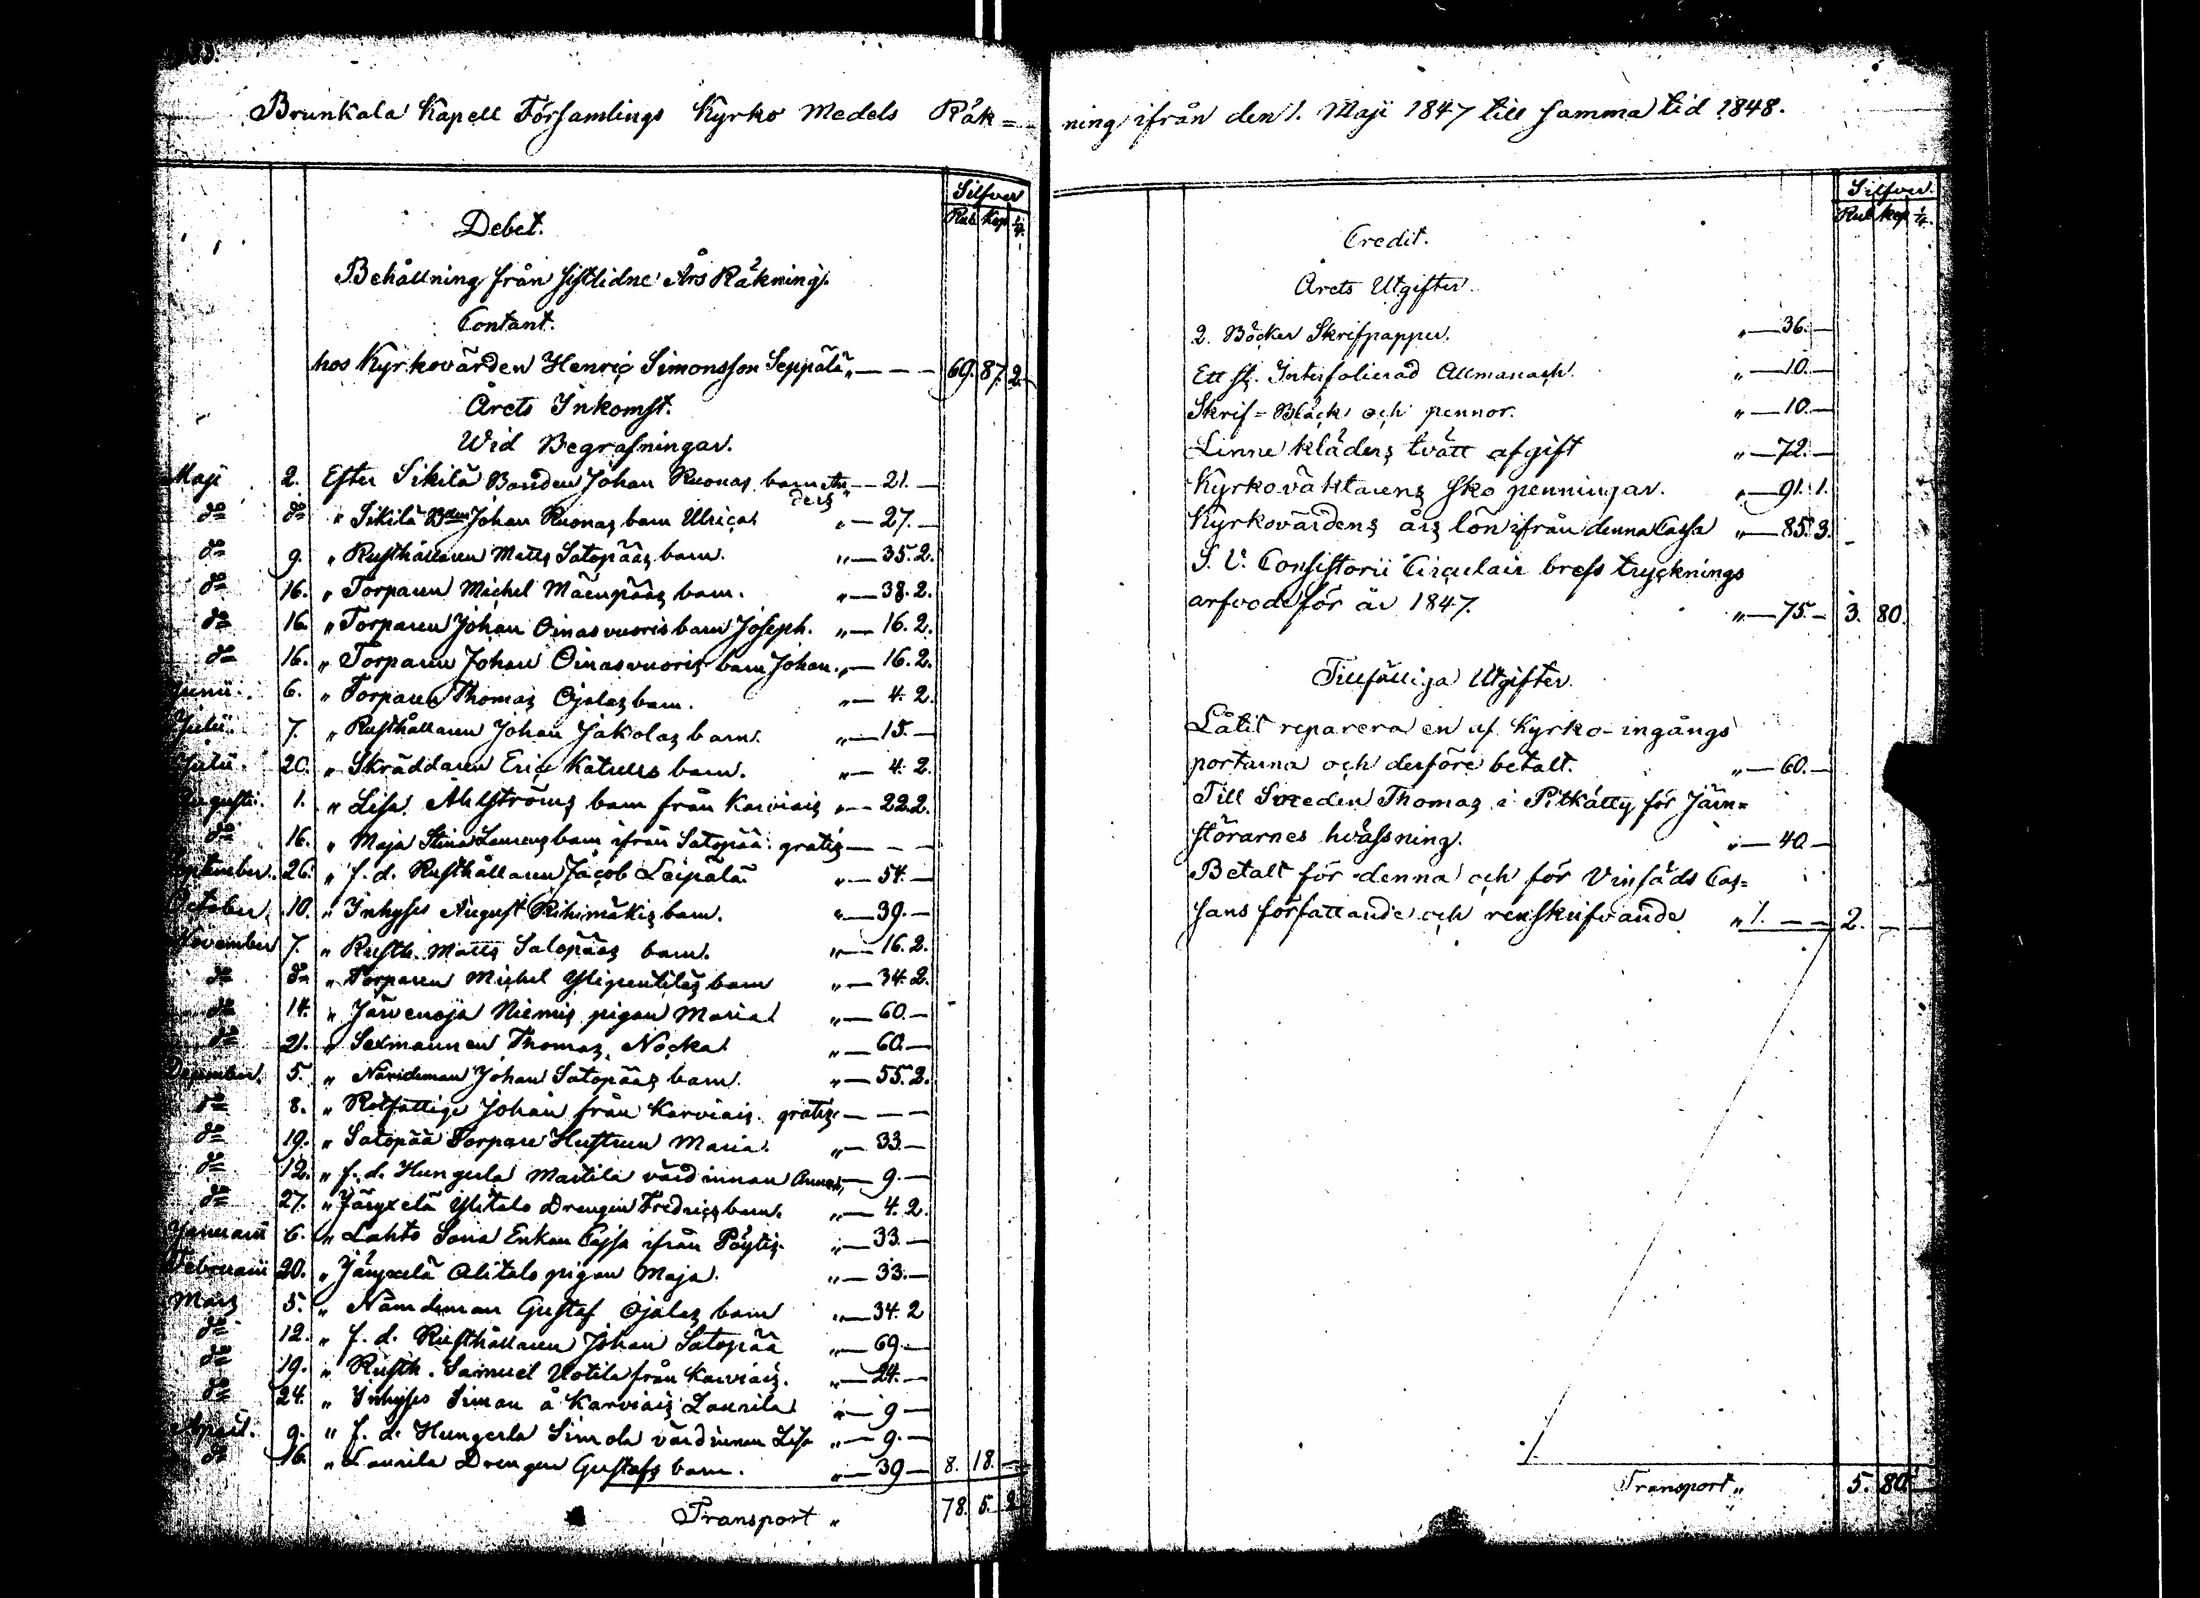 Brunkala Kapell Församlings Kyrko Medels Räk=
Silfver
Rub. Kop. 1/4.
Debet.
Behållning från sistlidne Års Räkning.
Contant.
hos Kyrkovärden Henric Simonsson Seppälä „ — — — 69. 87. 2.
Årets Inkomst.
Wid Begrafningar.
Maji 2. Efter Sikilä Bonden Johan Ruonas barn An- „ — 21. —
ders
do do „ Sikilä Bden Johan Ruonas barn Ulrica „ — 27. —
do 9. „ Rusthållaren Matts Satopääs barn. „ — 35. 2.
do 16. „ Torparen Michel Mäenpääs barn. „ — 38. 2.
do 16. „ Torparen Johan Oinasvuoris barn Joseph. „ — 16. 2.
do 16. „ Torparen Johan Oinasvuoris barn Johan. „ — 16. 2.
Junii. 6. „ Torparen Thomas Ojalas barn. „ — 4. 2.
Julii. 7. „ Rusthållaren Johan Jakolas barn. „ — 15. —
Julii. 20. „ Skräddaren Eric Katrens barn. „ — 4. 2.
Augusti. 1. „ Lisa Åhlströms barn från Karviais „ — 22. 2.
do 16. „ Maja Stina Laurens barn ifrån Satopää. gratis — — —
September. 26. „ f. d. Rusthållaren Jacob Leipälä „ — 54. —
October. 10. „ Inhyses August Riihimäkis barn. „ — 39. —
November 7. „ Rusth. Matts Satopääs barn. „ — 16. 2.
do do „ Torparen Michel Ylipentiläs barn „ — 34. 2.
do 14. „ Järvenoja Niemis pigan Maria „ — 60. —
do 21. „ Sexmannen Thomas Nocka „ — 60. —
December. 5. „ Nämdeman Johan Satopääs barn. „ — 55. 2.
do 8. „ Rotfattige Johan från Karviais. gratis — — —
do 19. „ Satopää Torpare Hustrun Maria. „ — 33. —
do 12. „ f. d. Hungerla Martila värdinnan Anna „ — 9. —
do 27. „ Järyxelä Ylitalo Drengen Fredrics barn. „ — 4. 2.
Januarii 6. „ Lahto Soria Enkan Cajsa ifrån Pöytis. „ — 33. —
Februarii 20. „ Järyxelä Alitalo pigan Maja. „ — 33. —
Mars 5. „ Nämdeman Gustaf Ojalas barn „ — 34. 2
do 12. „ f. d. Rusthållaren Johan Satopää „ — 69. —
do 19. „ Rusth. Samuel Uotila från Karviais. „ — 24. —
do 24. „ Inhyses Simon å Karviais Laurila „ — 9 —
April. 9. „ f. d. Hungerla Simola värdinnan Lisa „ — 9. —
do 16. „ Laurila Drengen Gustafs barn. „ — 39 — 8. 18. —
Transport „ 78. 5. 2
ning ifrån den 1. Maji 1847 till samma tid 1848.
Silfver.
Rub. Kop. 1/4.
Credit.
Årets Utgifter.
2. Böcker Skrifpapper. „ — 36. —
Ett st. Interfolierad Allmanach. „ — 10. —
Skrif=Bläck och pennor. „ — 10. —
Linne kläders tvätt afgift „ — 72. —
Kyrkováktarens sko penningar. „ — 91. 1.
Kyrkovärdens års lön ifrån denna Cassa „ — 85. 3.
S. V. Consistorii Circulair brefs trycknings
arfvode för år 1847. „ — 75. — 3. 80.
Tillfälliga Utgifter.
Låtit reparera en af Kyrko-ingångs
portarna och derföre betalt. „ — 60. —
Till Smeden Thomas i Pitkätty för Järn=
störarnes hvässning. „ — 40 —
Betalt för denna och för Vinsäds Cas=
sans författande och renskrifvande „ 1. — — 2. — —
Transport „ 5. 80. —